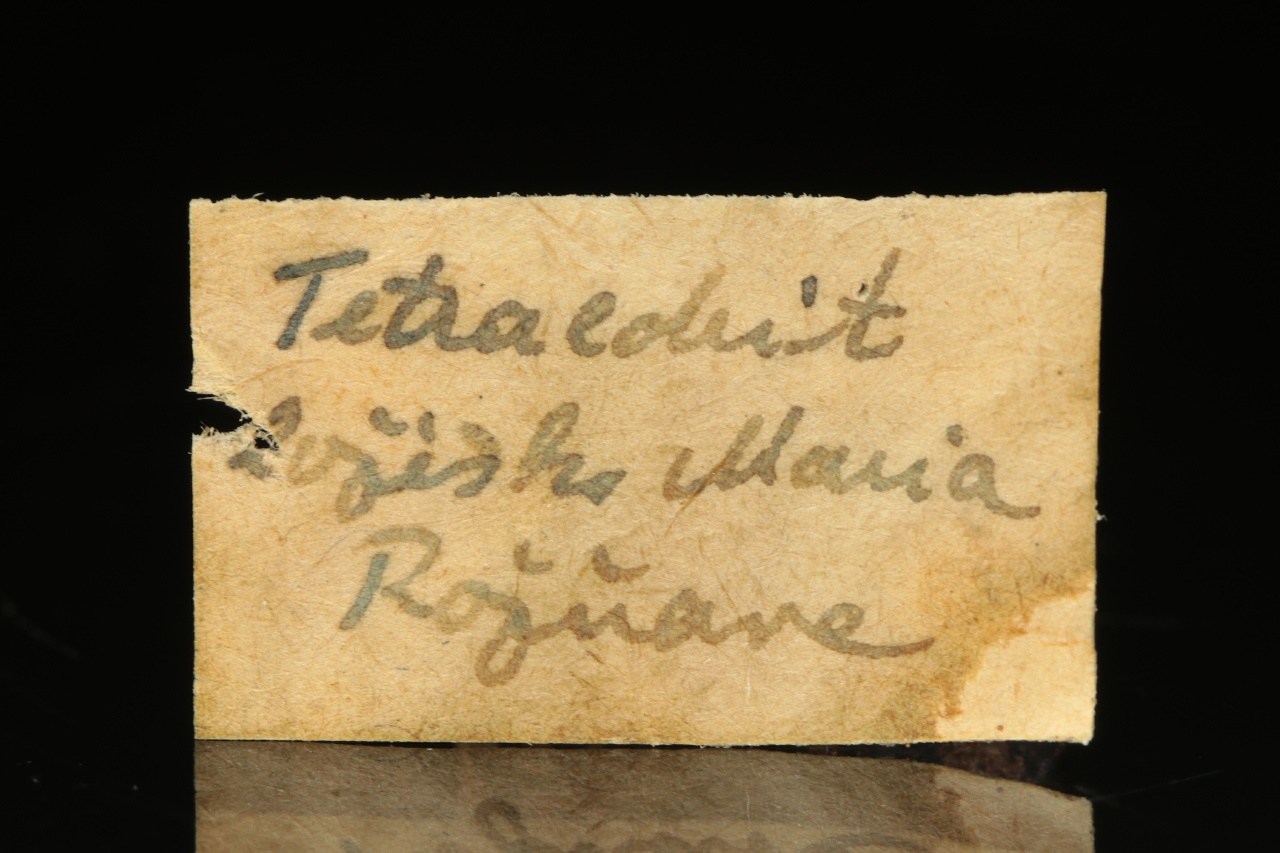 Tetraedrit
Ložisko Maria
Rožňava